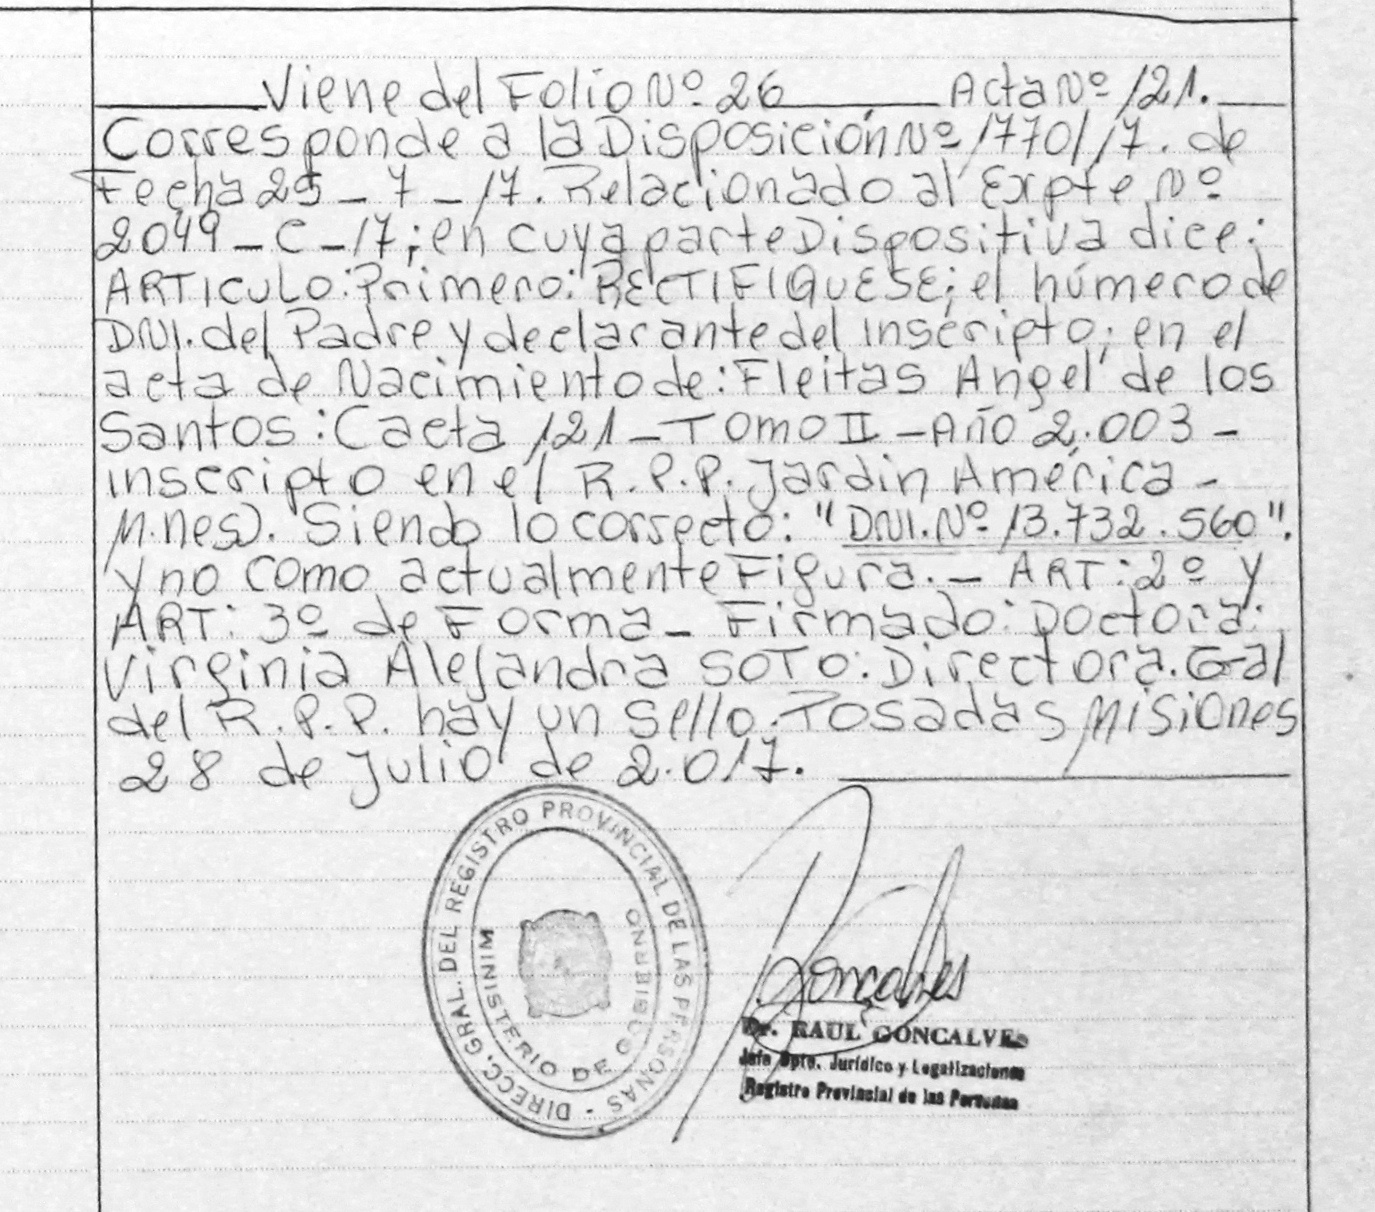 Viene del Folio Nº 26 Acta Nº 121.
Corresponde a la Disposición Nº 1770/17. de
Fecha 25 - 7 - 17. Relacionado al Expte Nº
2049 - C - 17; en cuya parte Dispositiva dice:
ARTICULO: Primero: RECTIFIQUESE; el número de
DNI. del Padre y declarante del inscripto; en el
acta de Nacimiento de: Fleitas Angel de los
Santos: (acta 121 - Tomo II - Año 2.003 -
inscripto en el R.P.P. Jardin América -
M.nes). Siendo lo correcto: "DNI. Nº 13.732.560".
y no como actualmente Figura. - ART: 2º y
ART: 3º de Forma - Firmado: Doctora:
Virginia Alejandra SOTO: Directora. Gral
del R.P.P. hay un sello. Posadas Misiones
28 de Julio de 2.017.
DIRECC. GRAL. DEL REGISTRO PROVINCIAL DE LAS PERSONAS -
MINISTERIO DE GOBIERNO
Goncalves
Dr. RAUL GONCALVES
Jefe Dpto. Jurídico y Legalizaciones
Registro Provincial de las Personas